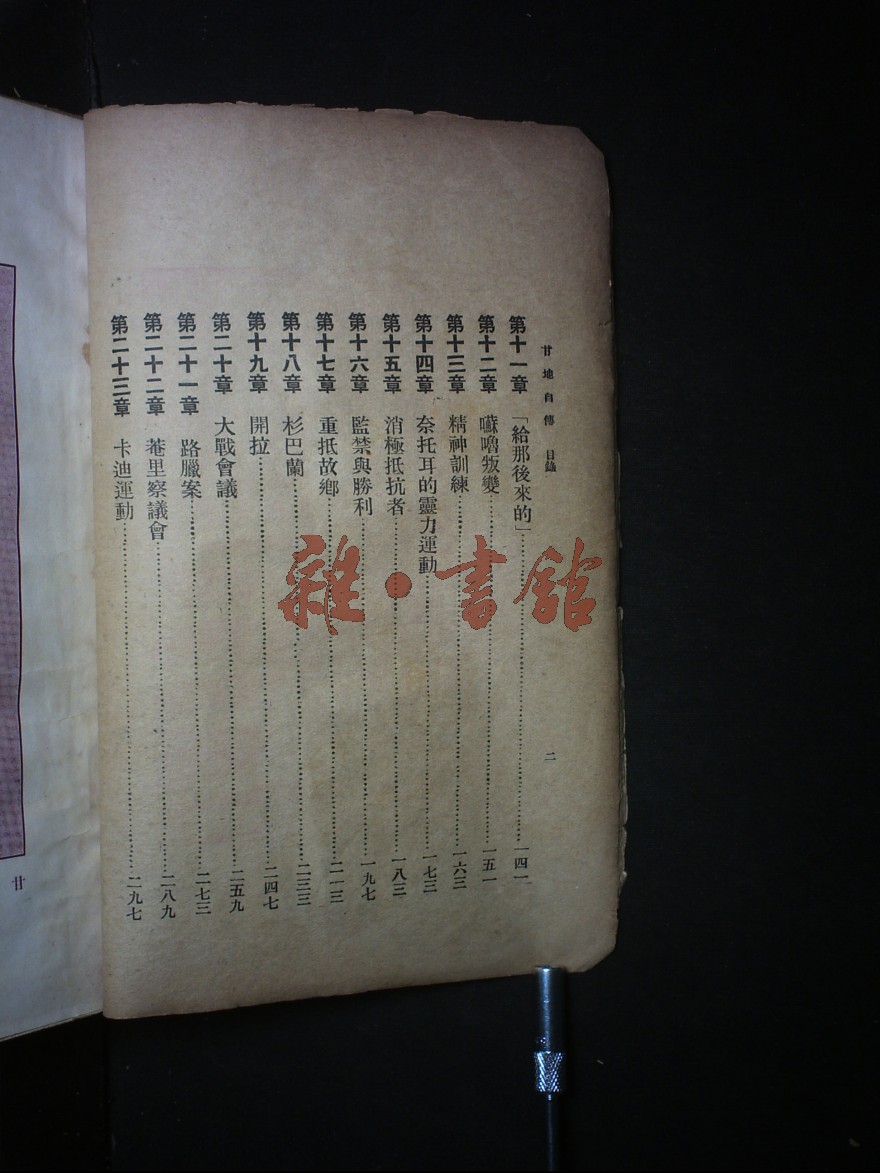 甘地自傳 目錄 二
第十一章 「給那後來的」 一四一
第十二章 囌嚕叛變 一五一
第十三章 精神訓練 一六三
第十四章 奈托耳的靈力運動 一七三
第十五章 消極抵抗者 一八三
第十六章 監禁與勝利 一九七
第十七章 重抵故鄉 二一三
第十八章 杉巴蘭 二三三
第十九章 開拉 二四七
第二十章 大戰會議 二五九
第二十一章 路臘案 二七三
第二十二章 菴里察議會 二八九
第二十三章 卡迪運動 二九七
雜·書館
甘